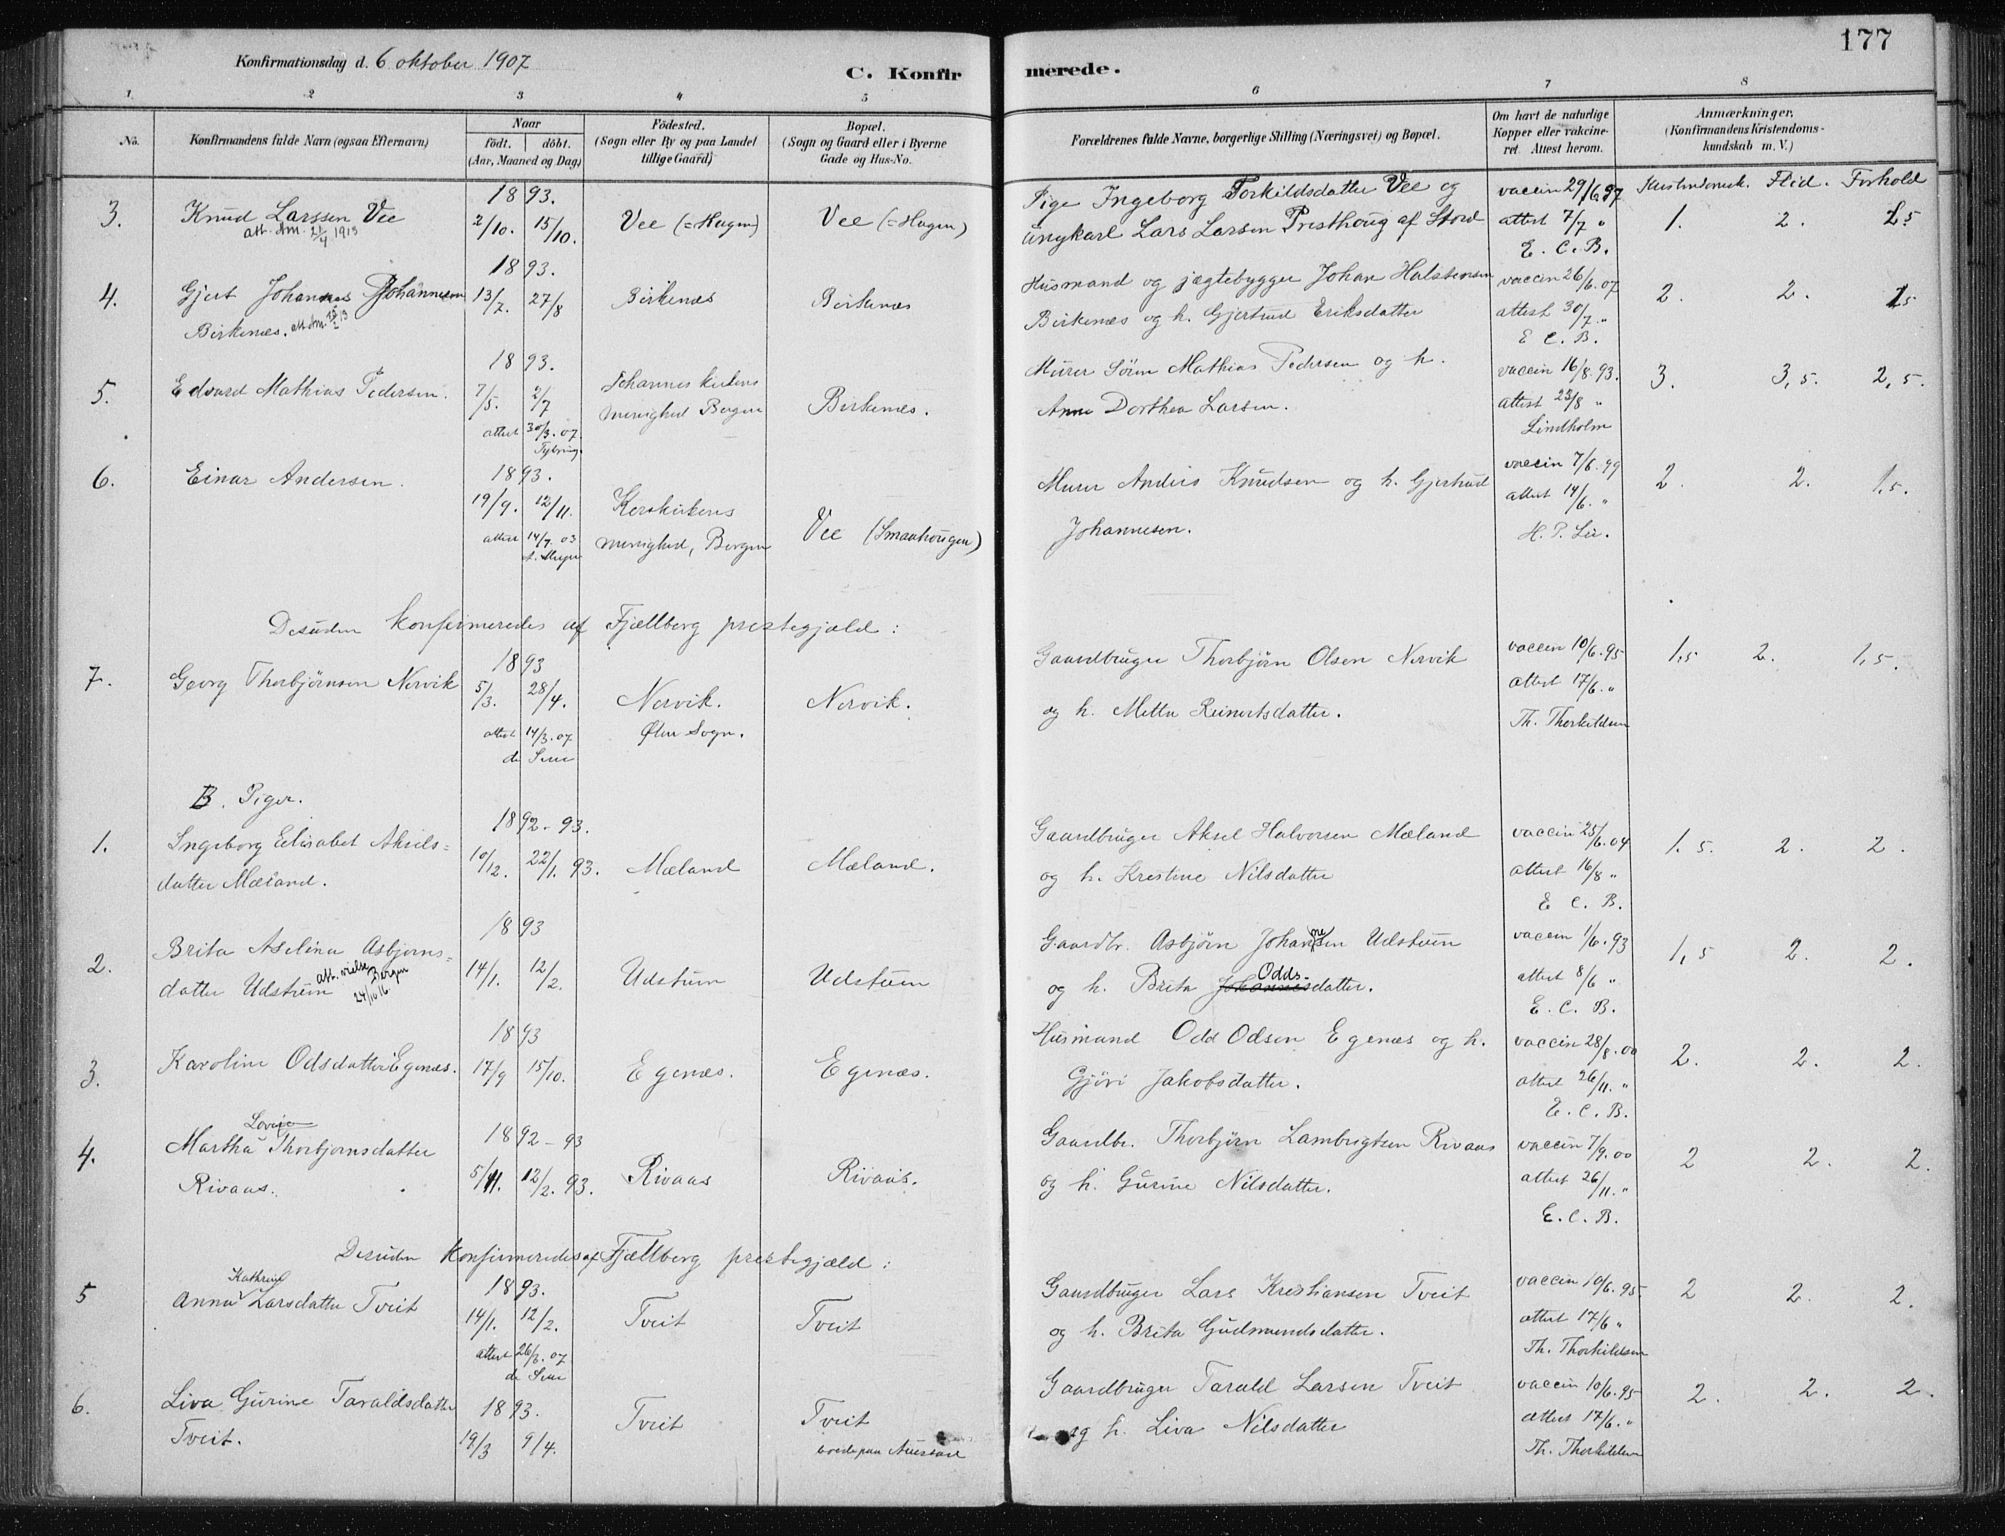 177
Konfirmationsdag d. 6 oktober 1907
C. Konfirmerede.
1. 2 3 4 5 6 7 8
No.
Konfirmandens fulde Navn (ogsaa Efternavn)
Naar
födt. döbt.
(Aar, Maaned og Dag)
Födested.
(Sogn eller By og paa Landet
tillige Gaard)
Bopæl.
(Sogn og Gaard eller i Byerne
Gade og Hus-No.
Forældrenes fulde Navne, borgerlige Stilling (Næringsvei) og Bopæl.
Om havt de naturlige
Kopper eller vakcine-
ret. Attest herom.
Anmærkninger.
(Konfirmandens Kristendoms-
kundskab m. V.)
Flid. Forhold
3. Knud Larssen Vee
att. Am. 21/4 1913
1893.
2/10. 15/10.
Vee (=Hagen)
Vee (=Hagen)
Pige Ingeborg Torkildsdatter Vee og
ungkarl Lars Larsen Presthoug af Stord
vaccin 29/6.97
attest 7/7 "
E. C. B.
1. 2. 1,5
4. Gjert Johannes Johannesen
Birkenæs.
1893.
13/7. 27/8
Birkenæs
Birkenæs
Husmand og jægtebygger Johan Halstensen
Birkenæs og h. Gjertrud Eriksdatter
vaccin 26/6.07
attest 30/7. "
E C. B.
2. 2. 1,5
5. Edvard Mathias Pedersen.
1893.
7/5. 2/7
attest 30/3.07.
Johanneskirkens
menighed Bergen
Birkenæs.
Murer Sören Mathias Pedersen og h.
Anne Dorthea Larsen.
vaccin 16/8.93.
attest 23/8 "
Lindholm
3. 3,5. 2,5.
6. Einar Andersen.
1893.
19/9. 12/11.
attest 14/7.03
Korskirkens
menighed, Bergen
Vee (Smaahougen)
Murer Anders Knudsen og h. Gjertrud
Johannesen.
vaccin 7/6.99
attest 14/6. "
H. P. Lie.
2. 2. 1,5.
Desuden konfirmeredes af Fjellberg prestegjæld:
7. Georg Thorbjörnsen Nervik
1893
5/3. 28/4.
attest 14/3.07
Nervik.
Ølen Sogn.
Nervik.
Gaardbruger Thorbjörn Olsen Nervik
og h. Mette Reinertsdatter.
vaccin 10/6.95
attest 17/6. "
Th. Thorkildsen
1,5 2. 1,5.
B. Piger.
1. Ingeborg Elisabet Aksels-
datter Mæland.
1892-93.
10/12. 22/1.93.
Mæland
Mæland.
Gaardbruger Aksel Halvorsen Mæland
og h. Kristine Nilsdatter
vaccin 25/6.04
attest 16/8 "
E C. B.
1.5. 2. 2.
2. Brita Aselina Asbjorns-
datter Udstuen
att. vielse Bergen
24/10 16.
1893
14/1. 12/2.
Udstuen
Udstuen
Gaardbr. Asbjörn Johannesen Udstuen
og h. Brita Johannesdatter. Odds-
vaccin 1/6.93
attest 8/6 "
E. C. B.
1,5 2. 2.
3. Karoline Odsdatter Egenæs.
1893
17/9 15/10.
Egenæs.
Egenæs.
Husmand Odd Odsen Egenæs og h.
Gjöri Jakobsdatter.
vaccin 28/8.00
attest 26/11. "
E. C. B.
2. 2. 2.
4. Martha Lovise Thorbjornsdatter
Rivaas.
1892-93
5/11. 12/2.93.
Rivaas
Rivaas.
Gaardbr. Thorbjörn Lambregtsen Rivaas
og h. Gurine Nilsdatter.
vaccin 7/9.00
attest 26/11. "
E. C. B.
2 2. 2.
Desuden konfirmeredes af Fjællberg prestegjæld:
5 Anna Kathrine Larsdatter Tveit
1893.
14/1. 12/2.
Tveit
Tveit
Gaardbruger Lars Kristiansen Tveit
og h. Brita Gudmundsdatter.
vaccin 10/6.95
attest 17/6 "
Th. Thorkildsen
2 2. 2.
6. Liva Gurine Taraldsdatter
Tveit.
1893.
19/3 9/4.
Tveit
Tveit
Gaardbruger Tarald Larsen Tveit
og h. Liva Nilsdatter
vaccin 10/6.95
attest 17/6. "
Th. Thorkildsen
2. 2. 2.